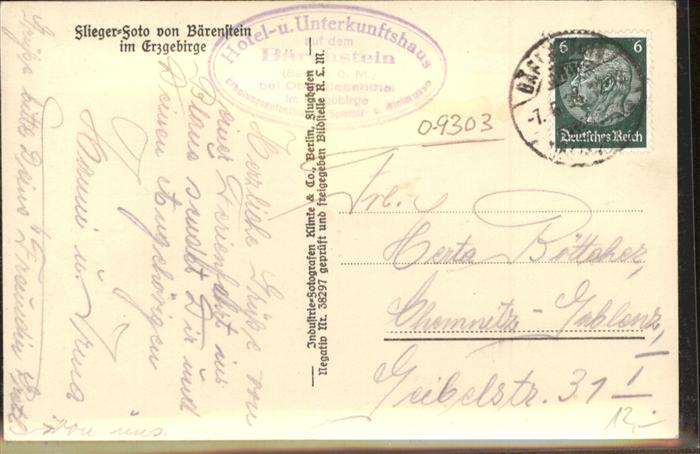 Flieger-Foto von Bärenstein
im Erzgebirge
Hotel- u. Unterkunftshaus
auf dem
Bärenstein
im Erzgebirge
09303
6 6
Deutsches Reich
Industrie-Fotografen Klinke & Co., Berlin, Flughafen
Negativ Nr. 38297 geprüft und freigegeben Bildstelle R. L. M.
Herzliche Grüße von
einer Ferienfahrt ins
Blaue sendet Dir und
Deinen Angehörigen
Hanni u. Irma
von uns.
Frl.
Herta Böttcher,
Chemnitz-Gablenz,
Geibelstr. 31 I
12,-